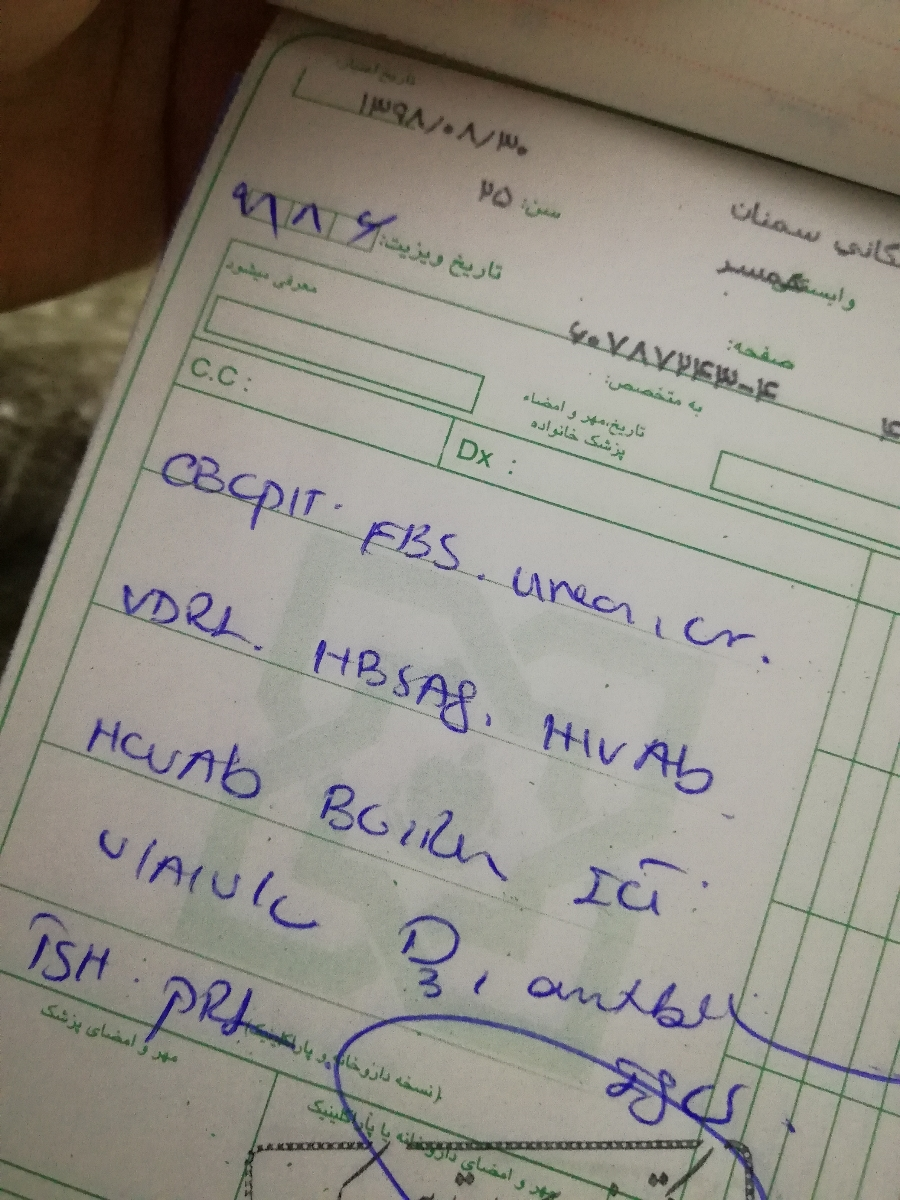 تاریخ اعتبار:
۱۳۹۸/۰۸/۳۰
سن: ۲۵
سمنان
همسر
تاریخ ویزیت: ۹۸ ۸ ۶
صفحه:
۶۰۷۸۷۲۴۳-۴
معرفی میشود
به متخصص:
تاریخ،مهر و امضاء
پزشک خانواده
C.C :
Dx :
CBCplT. FBS. urea, cr.
VDRL. HBSAg. HIVAb
HCVAb BG,Rh
U/A,U/C D3,
TSH. PRL
مهر و امضای پزشک
(نسخه داروخانه و پاراکلینیک
مهر و امضای داروخانه یا پاراکلینیک